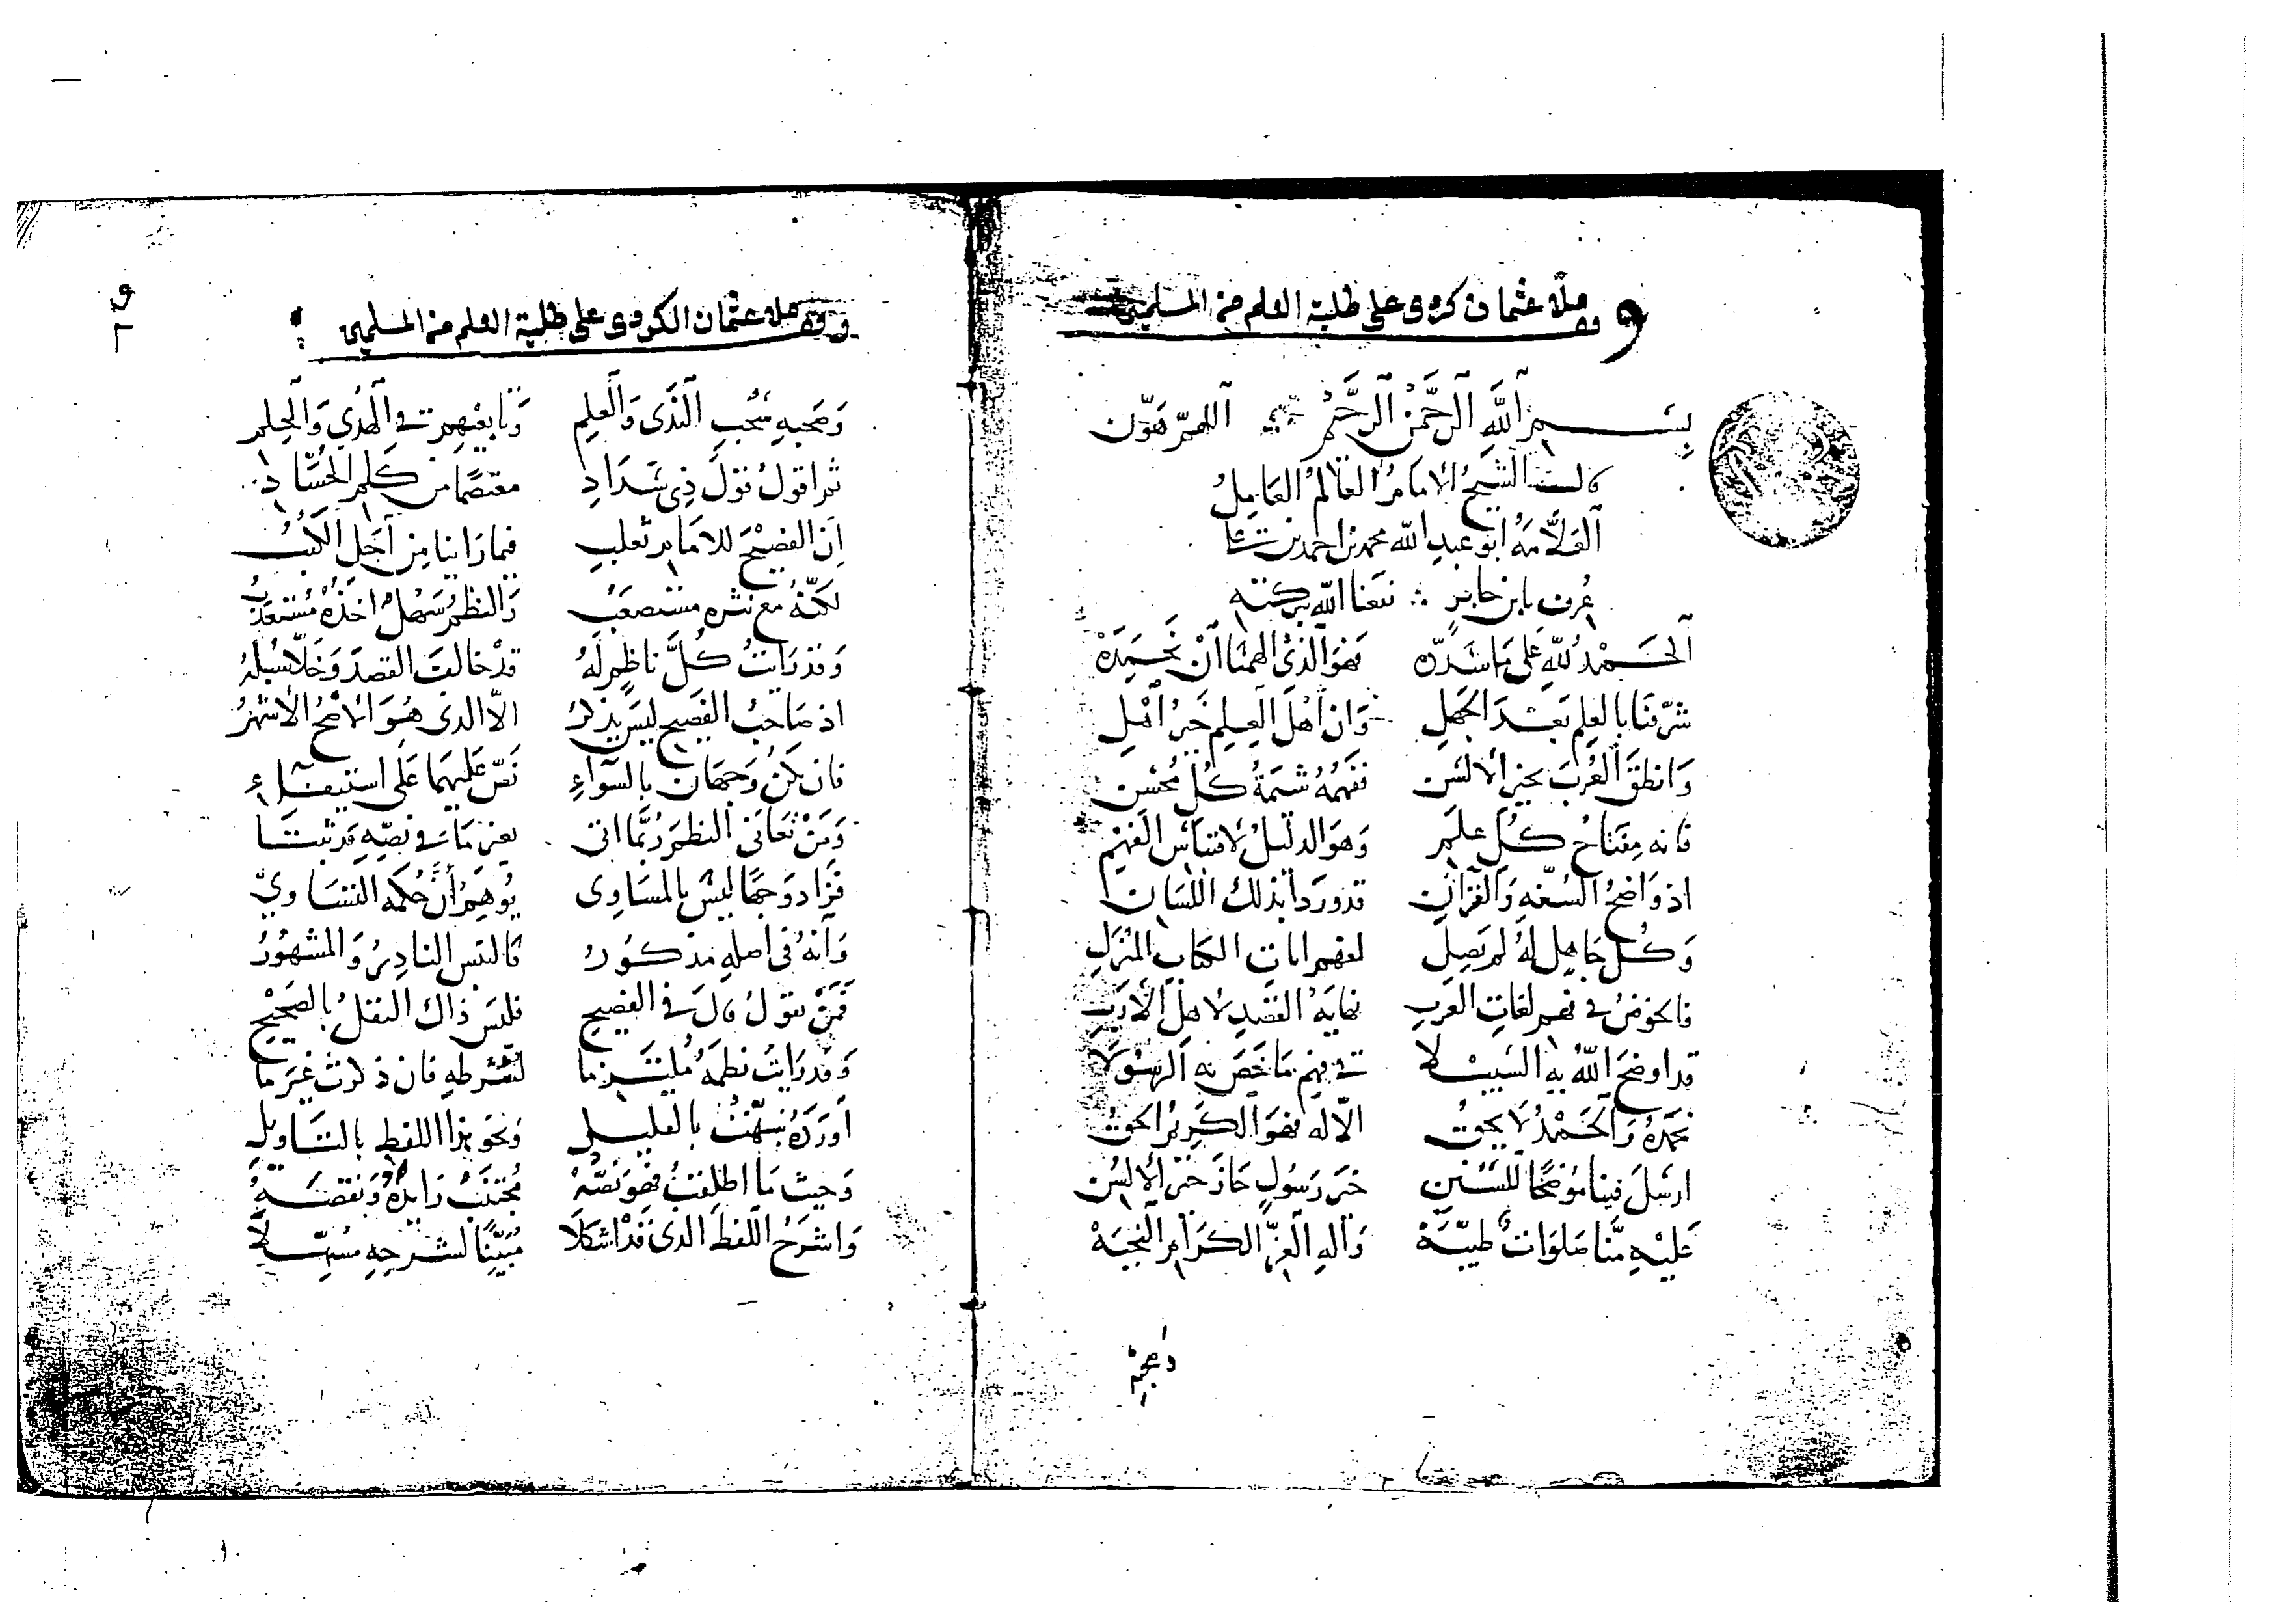 وقف ملا عثمان كردى على طلبة العلم من المسلمين
بِسْمِ اللَّهِ الرَّحْمَنِ الرَّحِيمِ اللهمّ هَوّن
قال الشيخُ الامَامُ العَالِمُ العَامِلُ
العَلَّامَةُ ابو عَبدِ الله محمد بن احمد بن على
عُرِفَ بابن جابرٍ نفعنا اللّه ببركته
الحَمْدُ للهِ عَلى مَا سَدَّده فَهوَ الذى الهمنا أنْ نَحْمَدَهْ
شرّفنَا بالعِلم بَعْدَ الجَهلِ وَان أهْلَ العِلمِ خَيرُ أهْلِ
وَانطقَ العُربَ بخير الألسُن ففهمُهُ شيمَةُ كُلِّ مُحْسِن
فانه مِفتَاحُ كُلِّ علمِ وَهوَ الدليلُ لاقتباس الفهْمِ
اذ وَاضحُ السُنّةِ وَالقرآنِ قد وردا بذلك اللسَان
وَكُلُّ جَاهِلٍ لهُ لم يَصِلِ لفهم اياتِ الكتابِ المُنْزَلِ
فالخوضُ فى فهم لغاتِ العَربِ نهايةُ القصدِ لاهل الأدَبِ
قد اوضحَ اللّهُ به السَبيْلا فى فهم مَا خَصَّ به الرسُولا
نحمدُهُ وَالحَمْدُ لا يحقُّ الّا له فهوَ الكَرِيْمُ الحَقُّ
ارسَلَ فينا مُوضحًا للسُّنَنِ خيرَ رَسُولٍ حَازَ خيرَ الألسُنِ
عَليْهِ منَّا صَلوَاتٌ طيّبَهْ وَآلهِ الغُرِّ الكرَامِ النجَبَهْ
وصحبه
وقف ملا عثمان الكردى على طلبة العلم من المسلمين
وَصَحبهِ سُحْبِ النَدَى وَالعلمِ وَتابعيْهِم فى الهدْيِ وَالحِلمِ
ثم اقولُ قولَ ذِى سَدَادِ معتصمًا من كَلِمِ الحُسَّادِ
اِن الفصيْحَ للامَامِ ثعلبِ فيما رَاينا مِن أجَلِّ الكتبِ
لكنّهُ مع نثره مستصعَبُ وَالنظمُ سَهْلٌ اخذُهُ مُستعذَبُ
وَقد رَايتُ كُلَّ ناظِمٍ لَهُ قدْ خالفَ القصدَ وَخَلّا سُبْلهُ
اذ صَاحبُ الفصيحِ ليسَ يذكرُ الّا الذى هُوَ الأصحُّ الأشهَرُ
فان يكنْ وَجهَان بالسَوَاءِ نَصّ عليهما عَلى استيفاءِ
وَمَنْ تعَانى النظمَ رُبَّمَا اتى بغير مَا فى نصِّهِ قد ثبتَا
فزَاد وَجهًا ليسَ بالمسَاوِى يُوهِمُ أنَّ حُكمَه التسَاويّ
وَأنهُ فى اصلهِ مذكورُ فالتبَس النادِرُ وَالمشهُوْرُ
فَمَنْ يقوْلُ قالَ فى الفصيحِ فليَس ذاك النقلُ بالصَحيْحِ
وَقد رَايتُ نظمَهُ مُلتزمَا لشرطهِ فان ذكرتُ غيرَ ما
أورَدَهُ نبّهْتُ بالقليلِ وَنحو هذا اللفظ بالتَاويلِ
وَحيث مَا اطلقتُ فهو نصُّهْ مُجتنَبٌ زايدُهُ وَنقصُهْ
وَاشرَحُ اللفظَ الذى قدْ اشكلا مُبَيِّنًا لشرحِهِ مُسَهِّلا